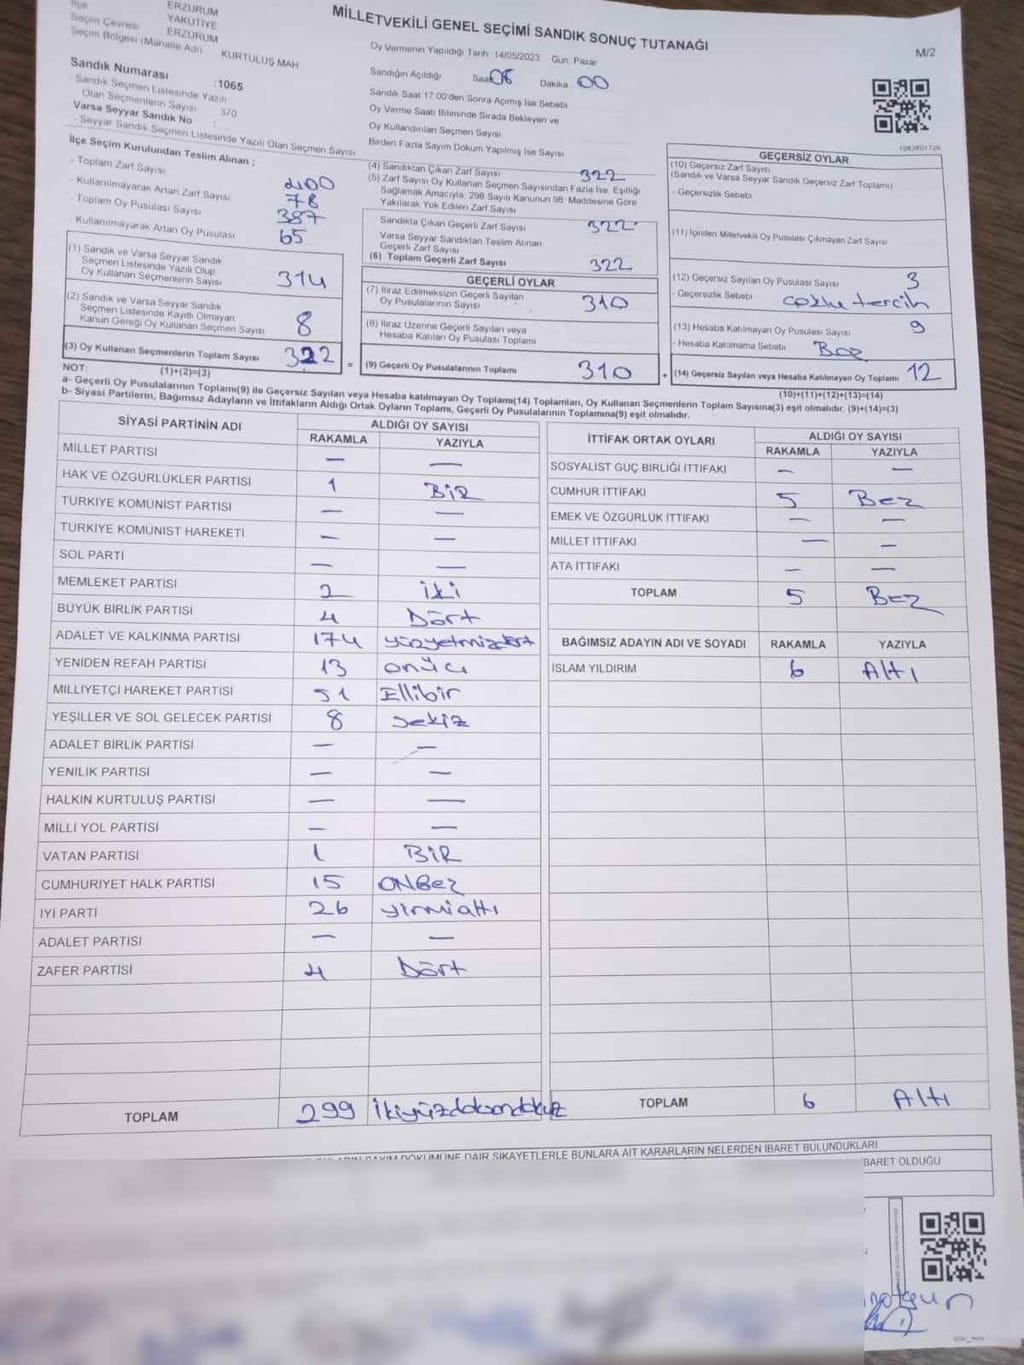 İlçe ERZURUM
Seçim Çevresi YAKUTİYE
ERZURUM
Seçim Bölgesi (Mahalle Adı) KURTULUŞ MAH
Sandık Numarası : 1065
- Sandık Seçmen Listesinde Yazılı
Olan Seçmenlerin Sayısı 370
Varsa Seyyar Sandık No :
- Seyyar Sandık Seçmen Listesinde Yazılı Olan Seçmen Sayısı
MİLLETVEKİLİ GENEL SEÇİMİ SANDIK SONUÇ TUTANAĞI
M/2
Oy Vermenin Yapıldığı Tarih 14/05/2023 Gün: Pazar
Sandığın Açıldığı Saat 08 Dakika 00
Sandık Saat 17:00'den Sonra Açılmış İse Sebebi
Oy Verme Saati Bitiminde Sırada Bekleyen ve
Oy Kullandırılan Seçmen Sayısı
Birden Fazla Sayım Döküm Yapılmış İse Sayısı
İlçe Seçim Kurulundan Teslim Alınan ;
- Toplam Zarf Sayısı 400
- Kullanılmayarak Artan Zarf Sayısı 78
- Toplam Oy Pusulası Sayısı 387
- Kullanılmayarak Artan Oy Pusulası 65
(1) Sandık ve Varsa Seyyar Sandık
Seçmen Listesinde Yazılı Olup
Oy Kullanan Seçmenlerin Sayısı 314
(2) Sandık ve Varsa Seyyar Sandık
Seçmen Listesinde Kayıtlı Olmayan
Kanun Gereği Oy Kullanan Seçmen Sayısı 8
(3) Oy Kullanan Seçmenlerin Toplam Sayısı 322
(1)+(2)=(3)
(4) Sandıktan Çıkan Zarf Sayısı 322
(5) Zarf Sayısı Oy Kullanan Seçmen Sayısından Fazla İse, Eşitliği
Sağlamak Amacıyla, 298 Sayılı Kanunun 98. Maddesine Göre
Yakılarak Yok Edilen Zarf Sayısı
Sandıkta Çıkan Geçerli Zarf Sayısı 322
Varsa Seyyar Sandıktan Teslim Alınan
Geçerli Zarf Sayısı
(6) Toplam Geçerli Zarf Sayısı 322
GEÇERLİ OYLAR
(7) İtiraz Edilmeksizin Geçerli Sayılan
Oy Pusulalarının Sayısı 310
(8) İtiraz Üzerine Geçerli Sayılan veya
Hesaba Katılan Oy Pusulası Toplamı
= (9) Geçerli Oy Pusulalarının Toplamı 310
GEÇERSİZ OYLAR
(10) Geçersiz Zarf Sayısı
(Sandık ve Varsa Seyyar Sandık Geçersiz Zarf Toplamı)
- Geçersizlik Sebebi
(11) İçinden Milletvekili Oy Pusulası Çıkmayan Zarf Sayısı
(12) Geçersiz Sayılan Oy Pusulası Sayısı 3
- Geçersizlik Sebebi çoklu tercih
(13) Hesaba Katılmayan Oy Pusulası Sayısı 9
- Hesaba Katılmama Sebebi Boş
+ (14) Geçersiz Sayılan veya Hesaba Katılmayan Oy Toplamı 12
(10)+(11)+(12)+(13)=(14)
NOT:
a- Geçerli Oy Pusulalarının Toplamı(9) ile Geçersiz Sayılan veya Hesaba katılmayan Oy Toplamı(14) Toplamları, Oy Kullanan Seçmenlerin Toplam Sayısına(3) eşit olmalıdır. (9)+(14)=(3)
b- Siyasi Partilerin, Bağımsız Adayların ve İttifakların Aldığı Ortak Oyların Toplamı, Geçerli Oy Pusulalarının Toplamına(9) eşit olmalıdır.
SİYASİ PARTİNİN ADI ALDIĞI OY SAYISI
RAKAMLA YAZIYLA
MİLLET PARTİSİ — —
HAK VE ÖZGÜRLÜKLER PARTİSİ 1 BİR
TÜRKİYE KOMÜNİST PARTİSİ — —
TÜRKİYE KOMÜNİST HAREKETİ — —
SOL PARTİ — —
MEMLEKET PARTİSİ 2 iki
BÜYÜK BİRLİK PARTİSİ 4 Dört
ADALET VE KALKINMA PARTİSİ 174 yüzyetmişdört
YENİDEN REFAH PARTİSİ 13 onüç
MİLLİYETÇİ HAREKET PARTİSİ 51 Ellibir
YEŞİLLER VE SOL GELECEK PARTİSİ 8 sekiz
ADALET BİRLİK PARTİSİ — —
YENİLİK PARTİSİ — —
HALKIN KURTULUŞ PARTİSİ — —
MİLLİ YOL PARTİSİ — —
VATAN PARTİSİ 1 BİR
CUMHURİYET HALK PARTİSİ 15 ONBEŞ
İYİ PARTİ 26 yirmialtı
ADALET PARTİSİ — —
ZAFER PARTİSİ 4 Dört
TOPLAM 299 ikiyüzdoksandokuz
İTTİFAK ORTAK OYLARI ALDIĞI OY SAYISI
RAKAMLA YAZIYLA
SOSYALİST GÜÇ BİRLİĞİ İTTİFAKI — —
CUMHUR İTTİFAKI 5 BEŞ
EMEK VE ÖZGÜRLÜK İTTİFAKI — —
MİLLET İTTİFAKI — —
ATA İTTİFAKI — —
TOPLAM 5 BEŞ
BAĞIMSIZ ADAYIN ADI VE SOYADI RAKAMLA YAZIYLA
İSLAM YILDIRIM 6 Altı
TOPLAM 6 Altı
DÖKÜMÜNE DAİR ŞİKAYETLERLE BUNLARA AİT KARARLARIN NELERDEN İBARET BULUNDUKLARI
BARET OLDUĞU